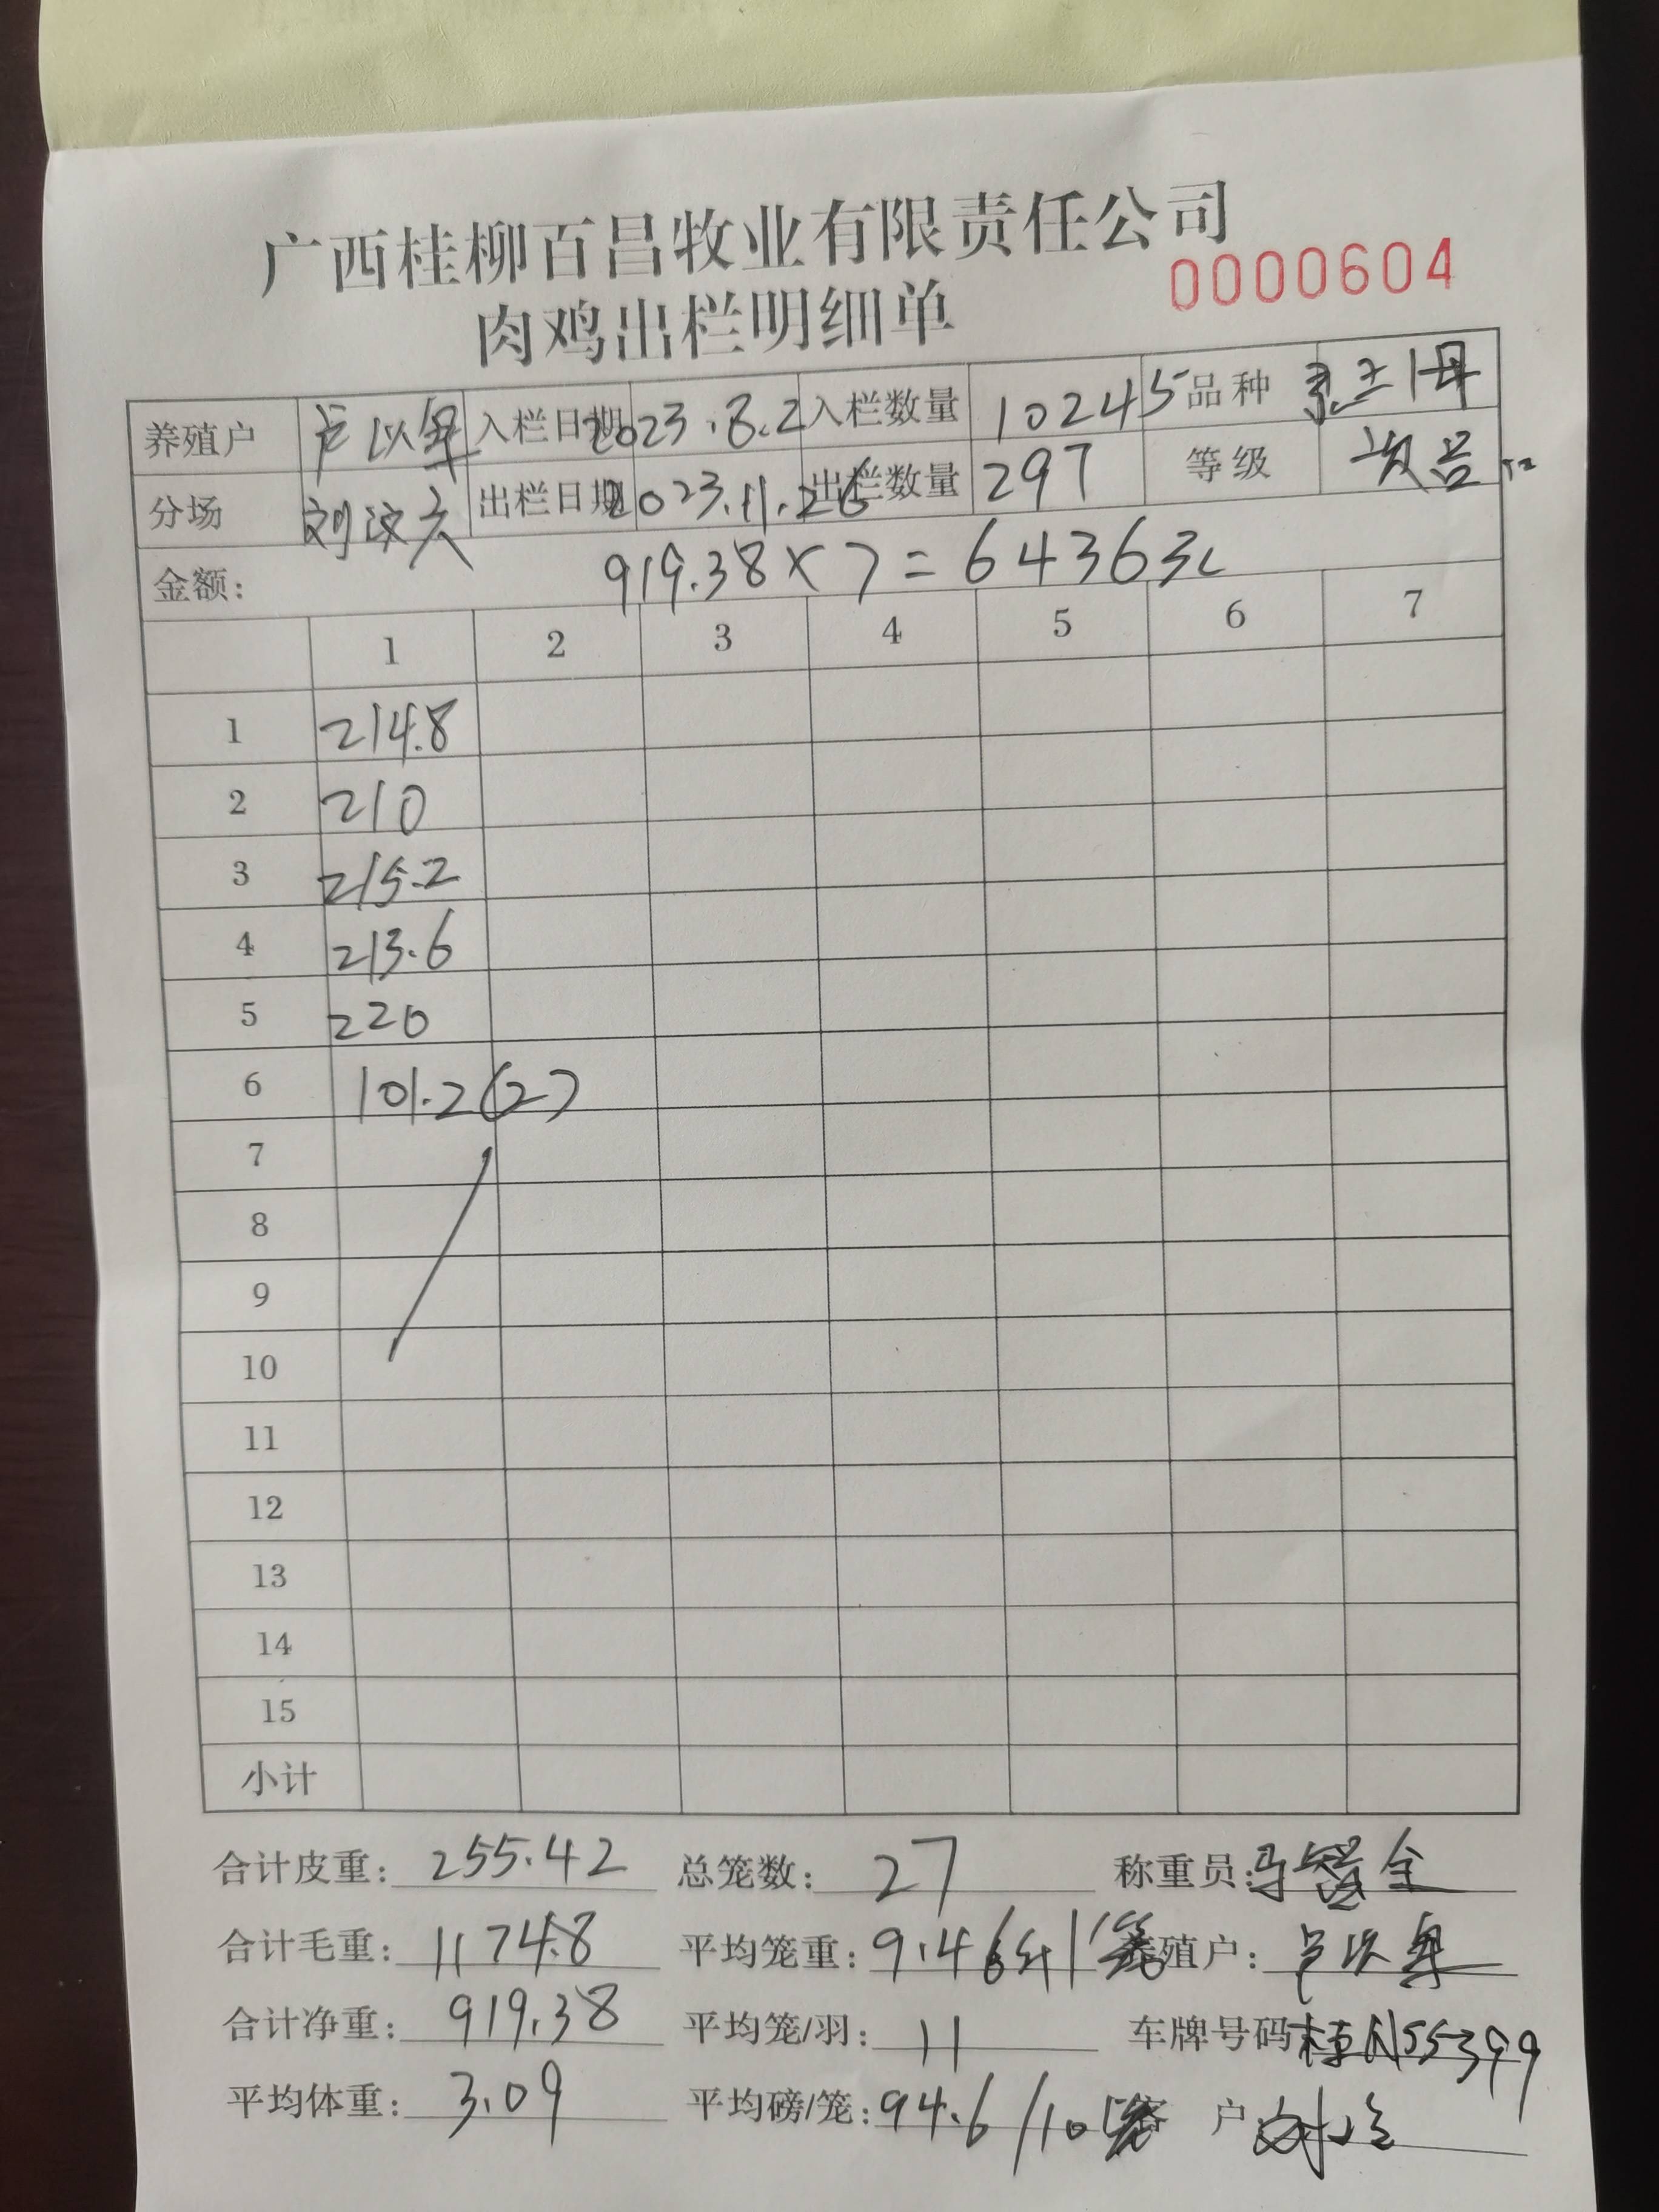 广西桂柳百昌牧业有限责任公司
0000604
肉鸡出栏明细单
养殖户 卢以军 入栏日期 2023.8.2 入栏数量 10245 品种
分场 刘汶 出栏日期 2023.11.26 出栏数量 297 等级 次品
金额: 919.38×7=6436元
1 2 3 4 5 6 7
1 214.8
2 210
3 215.2
4 213.6
5 220
6 101.2(2)
7
8
9
10
11
12
13
14
15
小计
合计皮重: 255.42 总笼数: 27 称重员:
合计毛重: 1174.8 平均笼重: 9.46斤/笼 养殖户:
合计净重: 919.38 平均笼/羽: 11 车牌号码 桂N55399
平均体重: 3.09 平均磅/笼: 94.6/10笼 客户